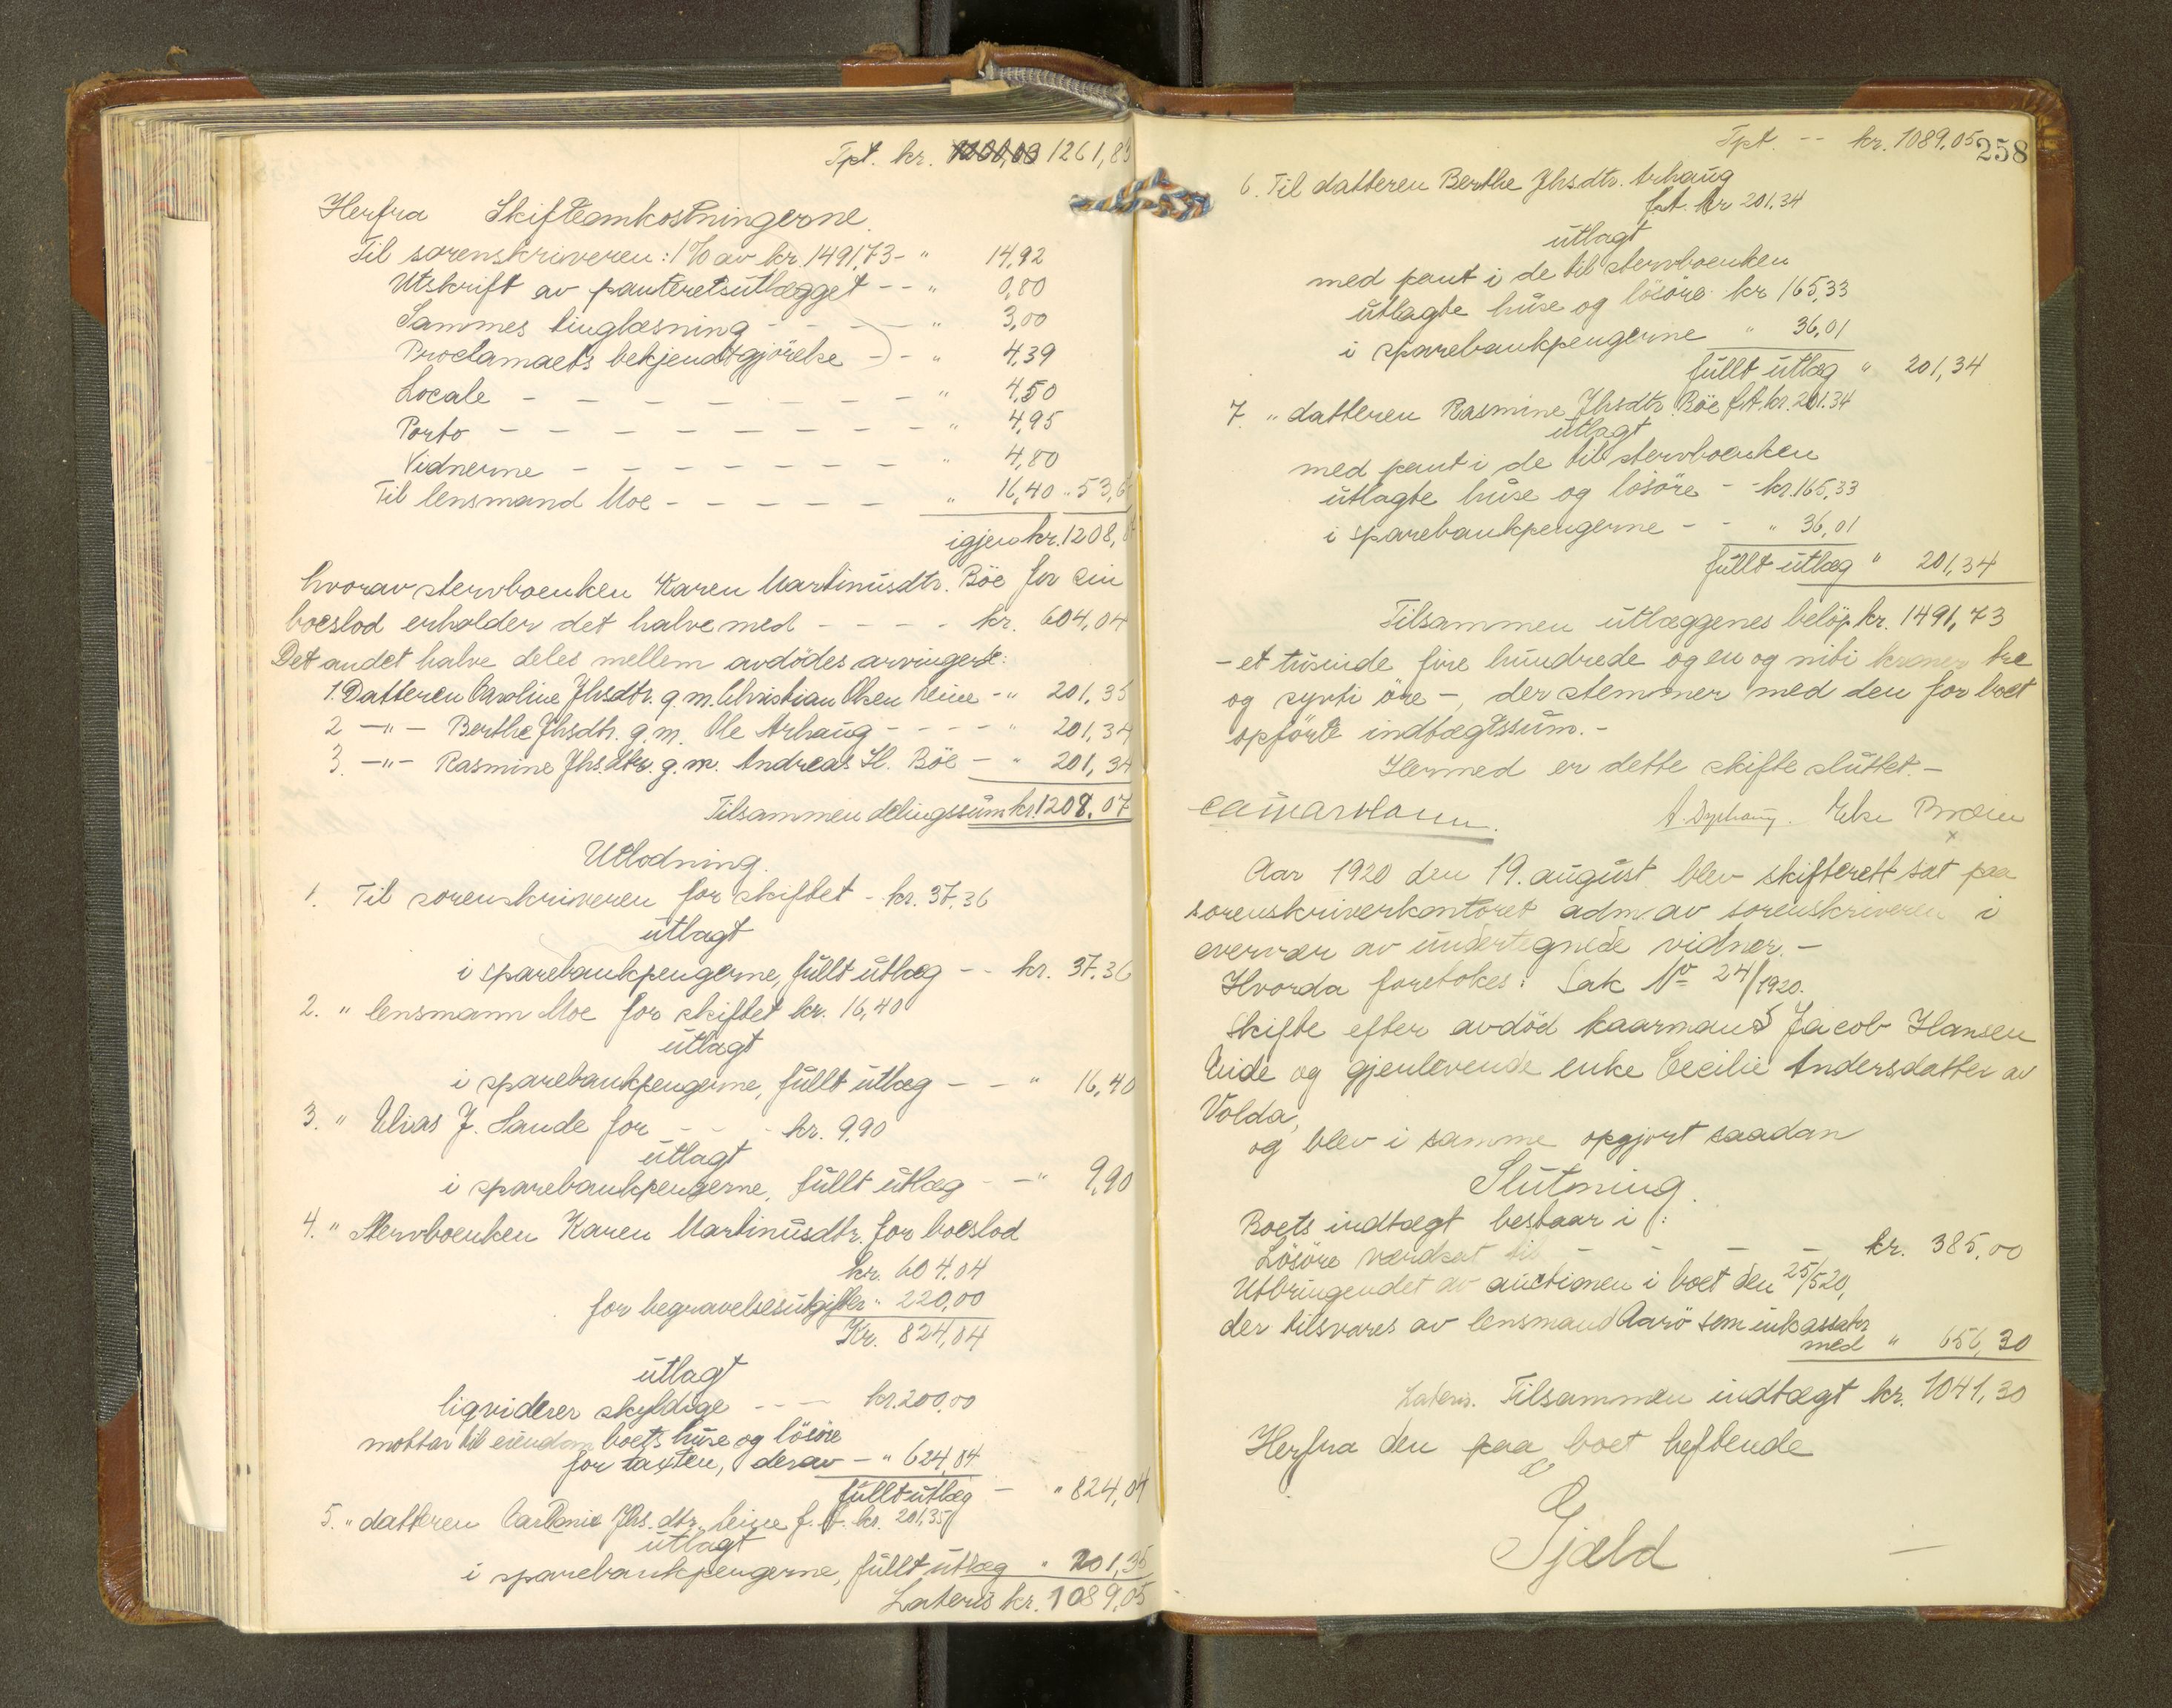 Tpt. kr. 1261,83
Herfra Skifteomkostningerne.
Til sorenskriveren: 1% av kr. 1491,73 - " 14,92
Utskrift av panteretsutlægget - - " 0,80
Sammes tinglæsning - - - - " 3,00
Proclamaets bekjendtgjörelse - - " 4,39
Locale - - - - - - - " 4,50
Porto - - - - - - - - " 4,95
Vidnerne - - - - - - " 4,80
Til lensmand Moe - - - - - " 16,40 " 53,
igjen kr. 1208,
hvorav stervboenken Karen Martinusdtr. Böe for sin
boeslod erholder det halve med - - - - kr. 604,04
Det andet halve deles mellem avdödes arvinger:
1. Datteren Caroline Jhsdtr. g. m. Christian Olsen - " 201,35
2 - " - Berthe Jhsdtr. g. m. Ole Arhaug - - - - " 201,34
3. - " - Rasmine Jhs.dtr. g. m. Andreas H. Böe - " 201,34
Tilsammen delingssum kr. 1208.07
Utlodning.
1. Til sorenskriveren for skiftet - kr. 37.36
utlagt
i sparebankpengerne, fullt utlæg - - kr. 37.36
2. " lensmann Moe for skiftet kr. 16,40
utlagt
i sparebankpengerne, fullt utlæg - - " 16,40
3. " Elias J. Sande for - - - kr. 9,90
utlagt
i sparebankpengerne, fullt utlæg - - " 9,90
4. " Stervboenken Karen Martinusdtr. for boeslod
kr. 604.04
for begravelsesutgifter " 220,00
Kr. 824,04
utlagt
liqviderer skyldige - - - kr. 200,00
mottar til eiendom boets huse og lösöre
for taxten, derav - " 624,04
fullt utlæg - " 824,04
5. " datteren Jhs. dtr. f. A. kr. 201,35
utlagt
i sparebankpengerne, fullt utlæg " 201,35
Lateris kr. 1089,05
Tpt. - - kr. 1089.05
258
6. Til datteren Berthe Jhsdtr. Arhaug
f.A. kr 201.34
utlagt
med pant i de til stervboenken
utlagte huse og lösöre kr 165,33
i sparebankpengerne " 36,01
fullt utlæg " 201,34
7. " datteren Rasmine Jhsdtr. Böe f.A. kr. 201.34
utlagt
med pant i de til stervboenken
utlagte huse og lösöre - - kr. 165,33
i sparebankpengerne - - " 36,01
fullt utlæg " 201,34
Tilsammen utlæggenes belöp kr. 1491,73
- et tusinde fire hundrede og en og niti kroner tre
og sytti öre -, der stemmer med den for boet
opförte indtægtssum. -
Hermed er dette skifte sluttet. -
Aar 1920 den 19. august blev skifterett sat paa
sorenskriverkontoret adm. av sorenskriveren i
overvær av undertegnede vidner. -
Hvorda foretokes: Sak No 24/1920.
Skifte efter avdöd kaarmand Jacob Hansen
Aide og gjenlevende enke Cecilie Andersdatter av
Volda,
og blev i samme opgjort saadan
Slutning.
Boets indtægt bestaar i:
Lösöre værdsat til - - - - kr. 385.00
Utbringendet av auctionen i boet den 25/5 20,
der tilsvares av lensmand Aarö som inkassator
med " 656,30
Lateris. Tilsammen indtægt kr. 1041,30
Herfra den paa boet heftende
Gjæld